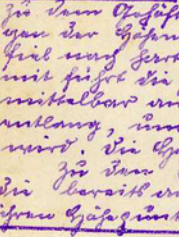 zu dem Gehöft
gen der Höhen
fiel nach hart
mit führt die
mittelbar an
entlang, und
wird. Die Hö
Zu den
die bereits a
ihren Höhepunkt